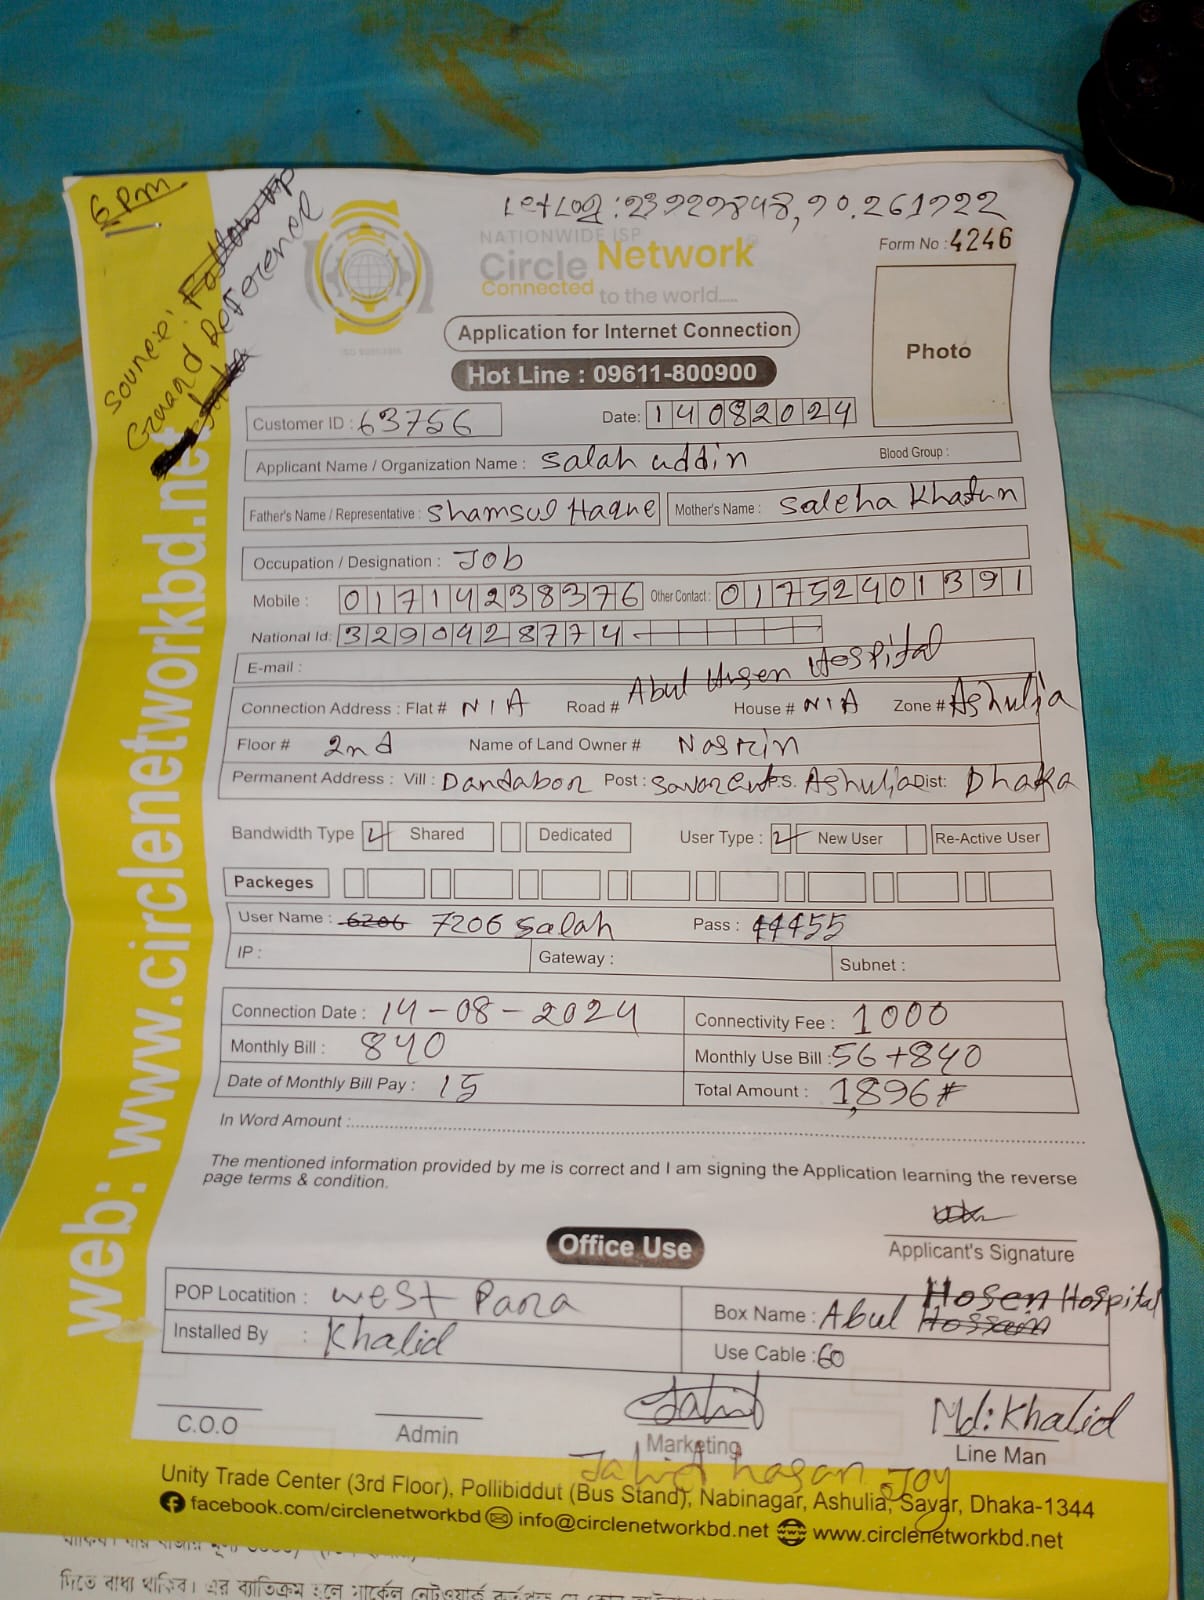 6 Pm
Source: Followup
Reference
Let Log: 23.929848, 90.261922
NATIONWIDE ISP
Circle Network
Connected to the world.....
Form No : 4246
Photo
Application for Internet Connection
Hot Line : 09611-800900
Customer ID : 63756 Date: 14082024
Applicant Name / Organization Name : Salah uddin Blood Group :
Father's Name / Representative : Shamsul Haque Mother's Name : Saleha Khatun
Occupation / Designation : Job
Mobile : 01714238376 Other Contact : 01752401391
National Id: 3290428774
E-mail :
Connection Address : Flat # N/A Road # Abul Hosen Hospital House # N/A Zone # Ashulia
Floor # 2nd Name of Land Owner # Nasrin
Permanent Address : Vill : Dandabor Post : Savar cant P.S. Ashulia Dist: Dhaka
Bandwidth Type Shared Dedicated User Type : New User Re-Active User
Packeges
User Name : 6206 7206 Salah Pass : 44455
IP : Gateway : Subnet :
Connection Date : 14-08-2024 Connectivity Fee : 1000
Monthly Bill : 840 Monthly Use Bill : 56+840
Date of Monthly Bill Pay : 15 Total Amount : 1,896#
In Word Amount :
The mentioned information provided by me is correct and I am signing the Application learning the reverse
page terms & condition.
Applicant's Signature
Office Use
POP Locatition : West Para Box Name : Abul Hosen Hospital
Hossain
Installed By : Khalid Use Cable : 60
Jahid Md: Khalid
C.O.O Admin Marketing Line Man
Jahid hasan Joy
Unity Trade Center (3rd Floor), Pollibiddut (Bus Stand), Nabinagar, Ashulia, Savar, Dhaka-1344
facebook.com/circlenetworkbd info@circlenetworkbd.net www.circlenetworkbd.net
web: www.circlenetworkbd.net
দিতে বাধ্য থাকিব। এর ব্যতিক্রম হলে সার্কেল নেটওয়ার্ক